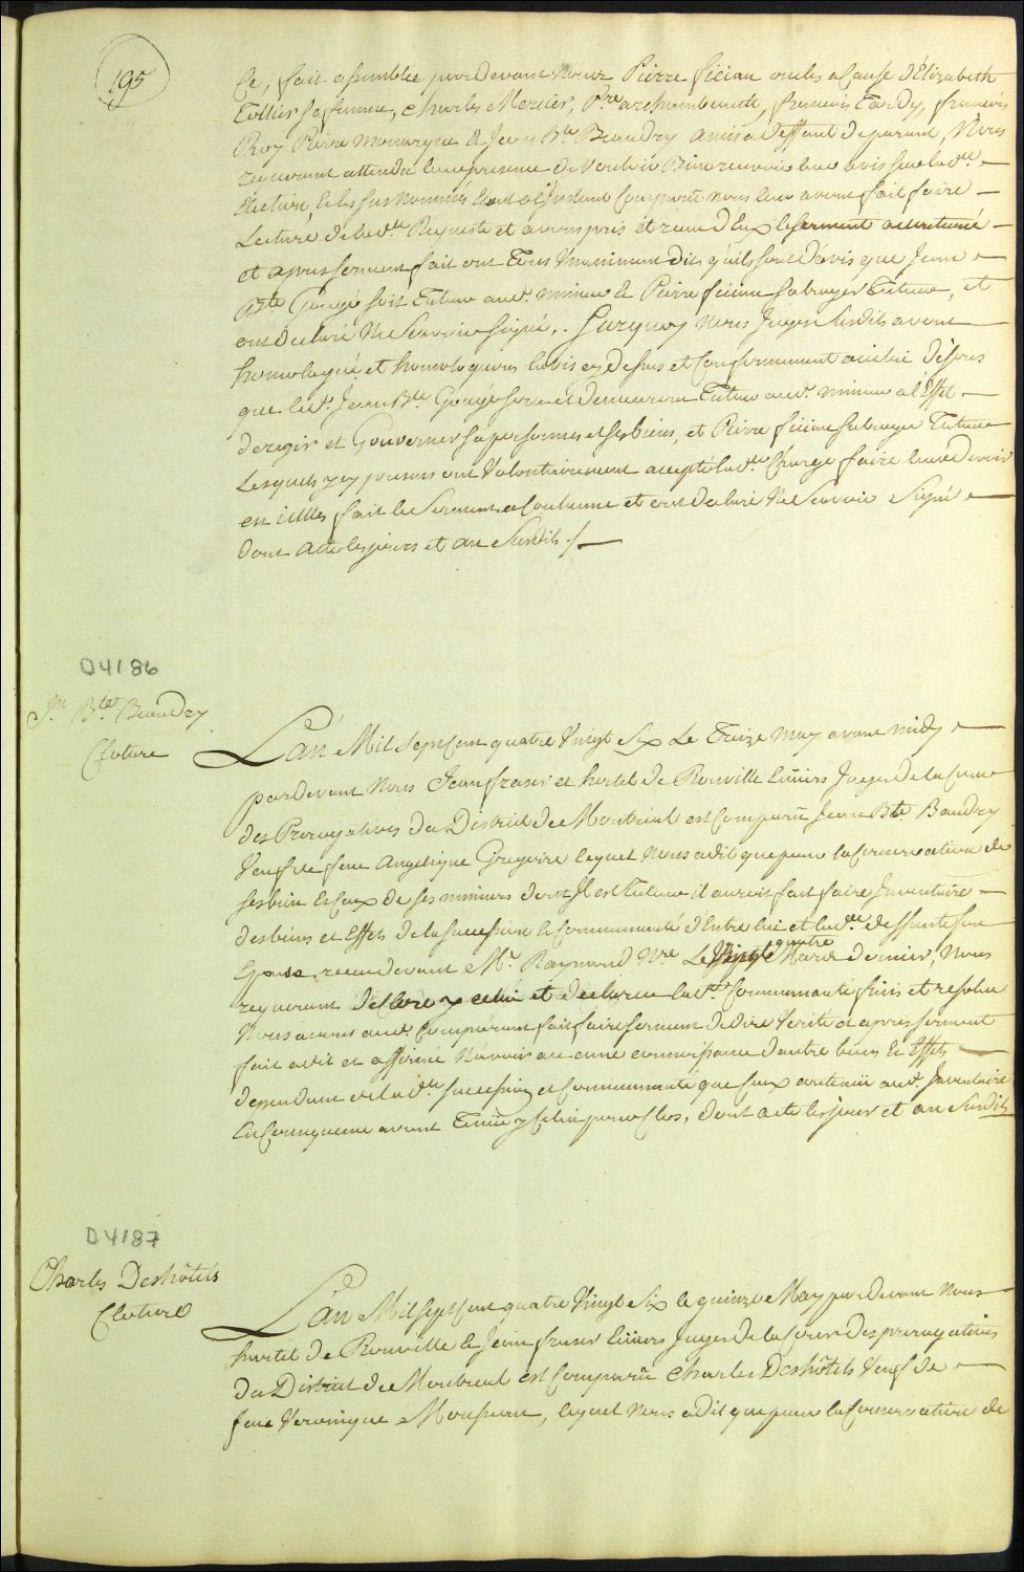 195
Ce, fait assemblée pardevant Nous Pierre oncle a Cause d'Elizabeth
Tellier sa femme, Charles Mercier, Pre archambault, francois Tardy, francois
Roy Pierre Monarque & Jean Bte Beaudry amis a deffaut de parans, Nous
requerant attendu leur presence de Vouloir Bien recevoir leur avis sur lade
Election, Et les sus Nommés Etant a l'Instant Comparu nous leur avons fait faire
Lecture de lade Requeste et avons pris et recu d'Eux le serment accoutumé
et apres serment fait ont Tous Unanimement dit, qu'ils sont d'avis que Jean
Bte soit Tuteur aud. mineur & Pierre subroger Tuteur, et
ont declaré Ne Scavoir Signé.. Surquoy Nous Juges Susdits avons
homologué et homologuons lavis cy Dessus et Conformement a icelui disons
que led. Jean Bte sera et demeurera Tuteur aud. mineur a l'Effet
de regir et Gouverner sa personne et ses biens, et Pierre subroger Tuteur
Lesquels a ce presens ont Volontairement accepté lade Charge faire leur Devoir
en icelles fait le Serment a Coutume et ont declaré Ne Scavoir Signé
Dont Acte les jours et an Susdits /
D4186
Jn Bte Beaudry
Cloture
L'an Mil Sept Cent quatre Vingt Six Le Treize May avant midy
pardevant Nous Jean fraser et hertel De Rouville Ecuiers Juges de la Cour
des Prerogatives du District de Montreal est Comparu Jean Bte Baudry
Veuf de feue Angelique Gregoire lequel Nous a dit que pour la Conservation de
ses biens Et Ceux de ses mineurs dont Il est Tuteur il auroit fait faire Inventaire
des biens et Effets de la Succession & Communauté d'Entre lui et lade deffunte son
Epouse, recu devant Me Raymond Nre Le Vingt quatre Mars dernier, Nous
requerant de Clore y celui et declarer lade Communauté finis et resolue
Nous avons aud. Comparant fait faire serment de dire Verité et apres serment
fait a dit et affirmé N'avoir aucune connoissance d'autre biens & Effets
dependans de lade Succession et Communauté que Ceux contenu aud. Inventaire
En Consequence avons Tenu y Celui pour Clos. Dont acte les jour et an Susdits
D4187
Charles Deshôtels
Cloture
L'an Mil Sept Cent quatre Vingt Six le quinze May pardevant Nous
hertel De Rouville & Jean fraser Ecuiers Juges de la Cour des prerogatives
du District de Montreal est Comparu Charles Deshôtels Veuf de
feue Veronique, lequel Nous a dit que pour la Conservation de